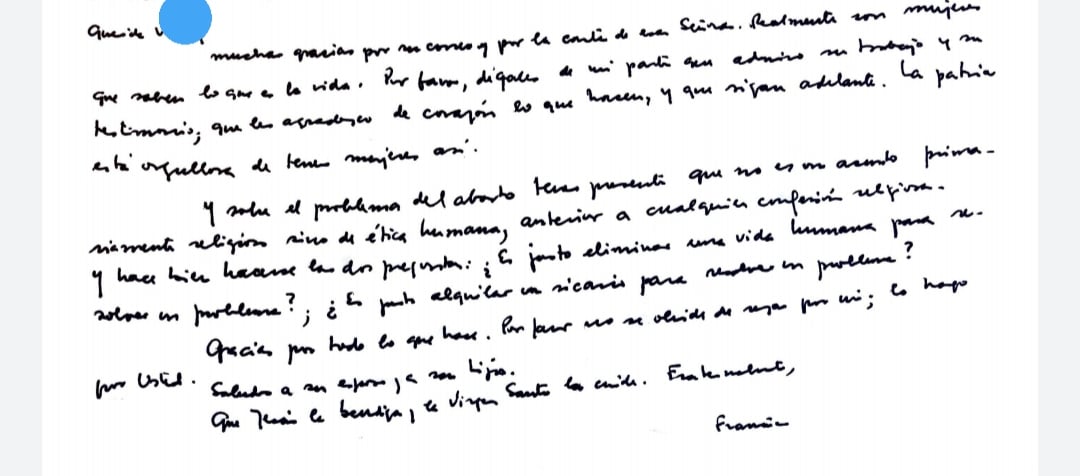 Querida
muchas gracias por su correo y por la carta de esas Señoras. Realmente son mujeres
que saben lo que es la vida. Por favor, dígales de mi parte que admiro su trabajo y su
testimonio; que les agradezco de corazón lo que hacen, y que sigan adelante. La patria
está orgullosa de tener mujeres así.
Y sobre el problema del aborto tener presente que no es un asunto prima-
riamente religioso sino de ética humana, anterior a cualquier confesión religiosa.
Y hace bien hacerse las dos preguntas: ¿Es justo eliminar una vida humana para re-
solver un problema?; ¿Es justo alquilar un sicario para resolver un problema?
Gracias por todo lo que hace. Por favor no se olvide de rezar por mí; lo hago
por Usted. Saludos a su esposo y a sus hijos.
Que Jesús la bendiga y la Virgen Santa la cuide. Fraternalmente,
Francisco